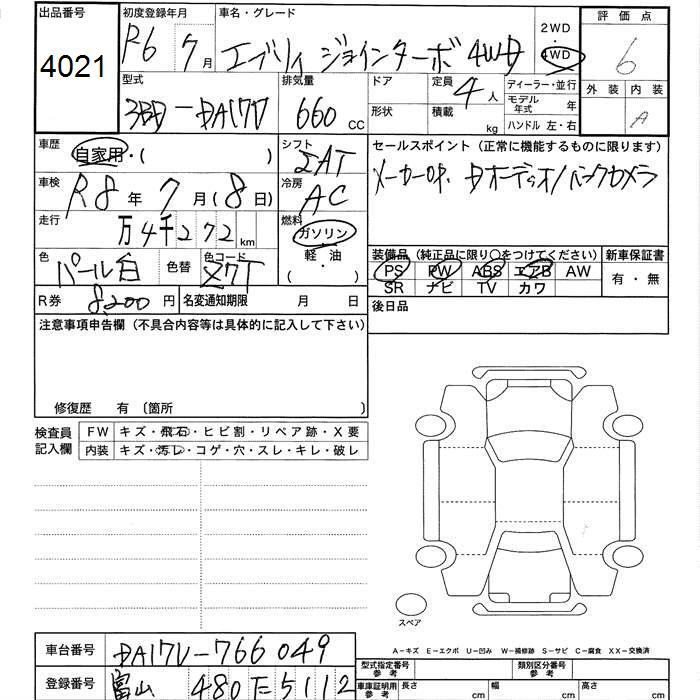 出品番号 4021
初度登録年月 R6 7月
車名・グレード エブリイ ジョインターボ 4WD
2WD
4WD
評価点 6
外装 内装 A
型式 3BD-DA17V
排気量 660 CC
ドア
形状
定員 4人
積載 kg
ディーラー・並行
モデル年式 年
ハンドル 左・右
車歴 自家用・( )
シフト IAT
セールスポイント (正常に機能するものに限ります)
メーカーOP. Dオーディオ/バックカメラ
車検 R8年 7月(8日)
冷房 AC
走行 万4千272km
燃料 ガソリン・軽油 ( )
色 パール白
色替
色コード Z7T
装備品 (純正品に限り〇をつけてください)
PS PW ABS エアB AW
SR ナビ TV カワ
新車保証書 有・無
R券 8,200円
名変通知期限 月 日
後日品
注意事項申告欄 (不具合内容等は具体的に記入して下さい)
修復歴 有 〔箇所 〕
検査員記入欄
FW キズ・飛石・ヒビ割・リペア跡・X要
内装 キズ・汚レ・コゲ・穴・スレ・キレ・破レ
スペア
A-キズ E-エクボ U-凹み W-補修跡 S-サビ C-腐食 XX-交換済
車台番号 DA17V-766049
登録番号 富山 480 5112
型式指定番号 参考
類別区分番号 参考
車庫証明用 参考 長さ cm 幅 cm 高さ cm